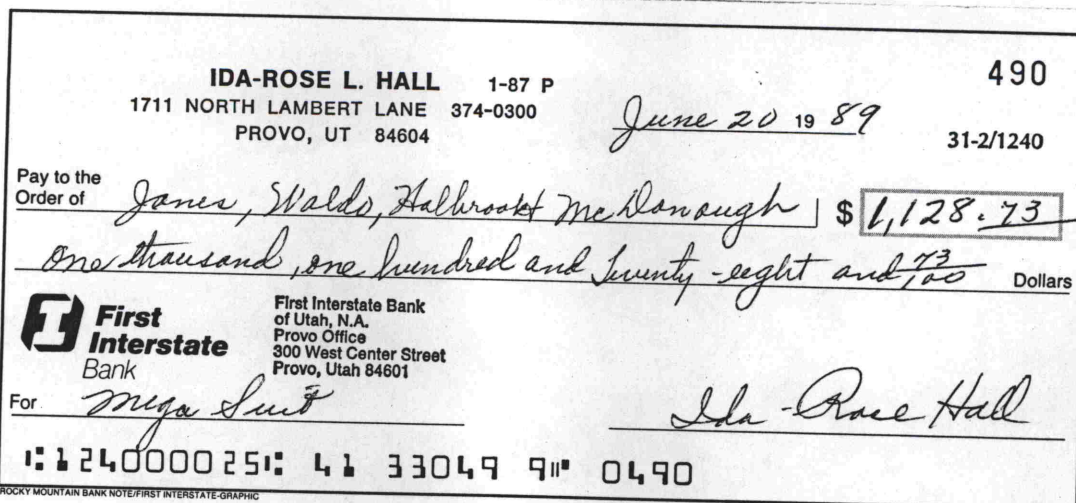 490
IDA-ROSE L. HALL 1-87 P
1711 NORTH LAMBERT LANE 374-0300
PROVO, UT 84604
June 20 19 89
31-2/1240
Pay to the
Order of Jones, Waldo, Holbrook & McDonough $ 1,128.73
one thousand, one hundred and twenty-eight and 73/100 Dollars
First
Interstate
Bank
First Interstate Bank
of Utah, N.A.
Provo Office
300 West Center Street
Provo, Utah 84601
For Mega Suit
Ida-Rose Hall
⑆124000025⑆ 41 33049 9⑈ 0490
ROCKY MOUNTAIN BANK NOTE/FIRST INTERSTATE-GRAPHIC